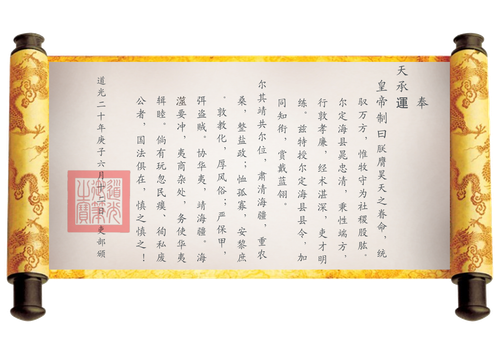 奉
天承運
皇帝制曰朕膺昊天之眷命，统
驭万方，惟牧守为社稷股肱、
尔定海县晁忠清，秉性端方，
行敦孝廉，经术湛深，吏才明
练。兹特授尔定海县县令，加
同知衔，赏戴蓝翎。
尔其靖共尔位，肃清海疆，重农
桑，整盐政；恤孤寡，安黎庶
。敦教化，厚风俗；严保甲，
弭盗贼。协华夷，靖海疆。海
澨要冲，夷商杂处，务使华夷
辑睦。倘有玩忽民瘼、徇私废
公者，国法俱在，慎之慎之！
道光二十年庚子六月二日 吏部颁